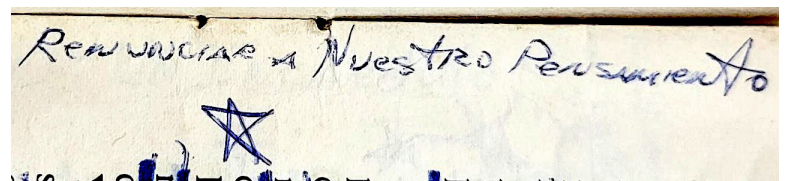 Renunciar a Nuestro Pensamiento